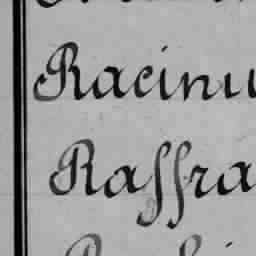 Racinu
Raffra